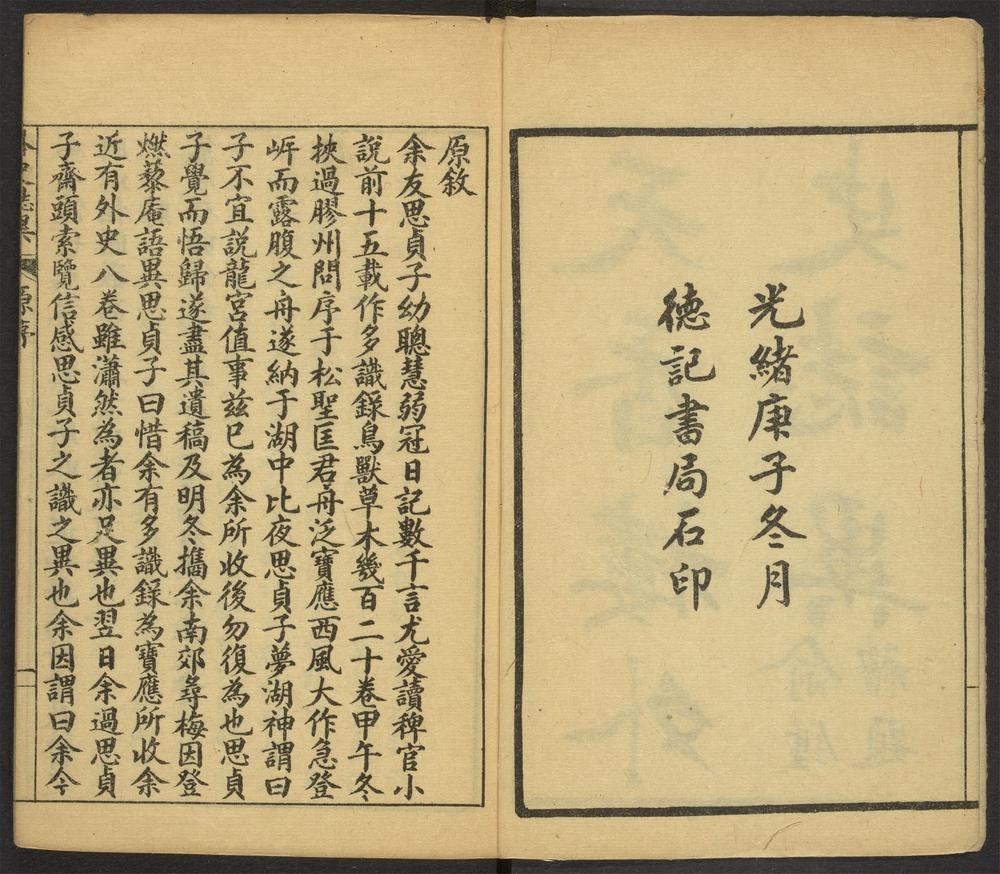 光緒庚子冬月
德記書局石印
原敘
余友思貞子幼聰慧弱冠日記數千言尤愛讀稗官小
說前十五載作多識錄鳥獸草木幾百二十卷甲午冬
挾過膠州問序于松聖匡君舟泛寶應西風大作急登
岸而露腹之舟遂納于湖中比夜思貞子夢湖神謂曰
子不宜說龍宮值事茲已為余所收後勿復為也思貞
子覺而悟歸遂盡其遺稿及明冬攜余南郊尋梅因登
燃藜庵語異思貞子曰惜余有多識錄為寶應所收余
近有外史八卷雖瀟然為者亦足異也翌日余過思貞
子齋頭索覽信感思貞子之識之異也余因謂曰余今